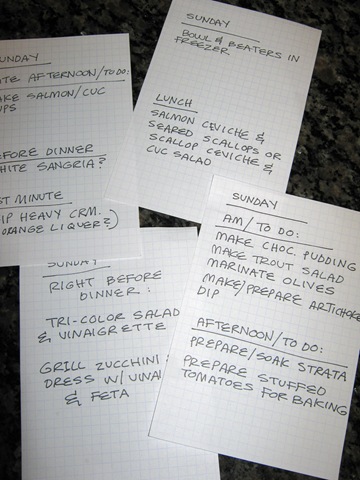 SUNDAY
BOWL & BEATERS IN
FREEZER
LUNCH
SALMON CEVICHE &
SEARED SCALLOPS OR
SCALLOP CEVICHE &
CUC SALAD
SUNDAY
ATE AFTERNOON/TO DO:
AKE SALMON/CUC
UPS
EFORE DINNER
HITE SANGRIA?
ST MINUTE
IP HEAVY CRM.
ORANGE LIQUER?)
SUNDAY
AM/TO DO:
MAKE CHOC. PUDDING
MAKE TROUT SALAD
MARINATE OLIVES
MAKE/PREPARE ARTICHOKE
DIP
AFTERNOON/TO DO:
PREPARE/SOAK STRATA
PREPARE STUFFED
TOMATOES FOR BAKING
SUNDAY
RIGHT BEFORE
DINNER:
TRI-COLOR SALAD
& VINAIGRETTE
GRILL ZUCCHINI &
DRESS W/ VINAI
& FETA